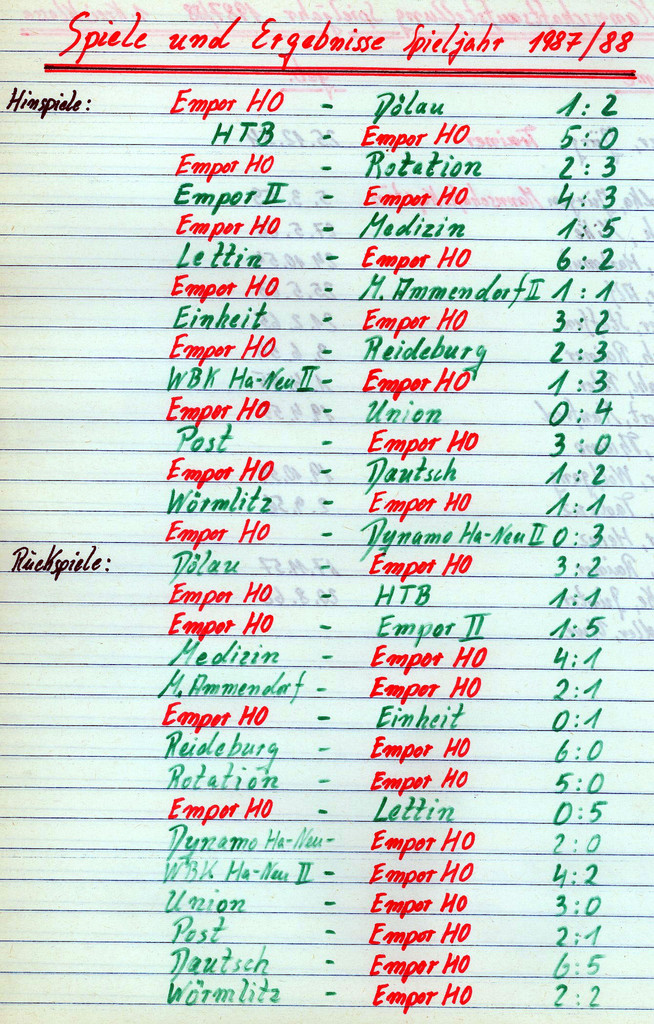 Spiele und Ergebnisse Spieljahr 1987/88
Hinspiele: Empor HO - Dölau 1:2
HTB - Empor HO 5:0
Empor HO - Rotation 2:3
Empor II - Empor HO 4:3
Empor HO - Medizin 1:5
Lettin - Empor HO 6:2
Empor HO - M. Ammendorf II 1:1
Einheit - Empor HO 3:2
Empor HO - Reideburg 2:3
WBK Ha-Neu II - Empor HO 1:3
Empor HO - Union 0:4
Post - Empor HO 3:0
Empor HO - Dautsch 1:2
Wörmlitz - Empor HO 1:1
Empor HO - Dynamo Ha-Neu II 0:3
Rückspiele: Dölau - Empor HO 3:2
Empor HO - HTB 1:1
Empor HO - Empor II 1:5
Medizin - Empor HO 4:1
M. Ammendorf - Empor HO 2:1
Empor HO - Einheit 0:1
Reideburg - Empor HO 6:0
Rotation - Empor HO 5:0
Empor HO - Lettin 0:5
Dynamo Ha-Neu - Empor HO 2:0
WBK Ha-Neu II - Empor HO 4:2
Union - Empor HO 3:0
Post - Empor HO 2:1
Dautsch - Empor HO 6:5
Wörmlitz - Empor HO 2:2